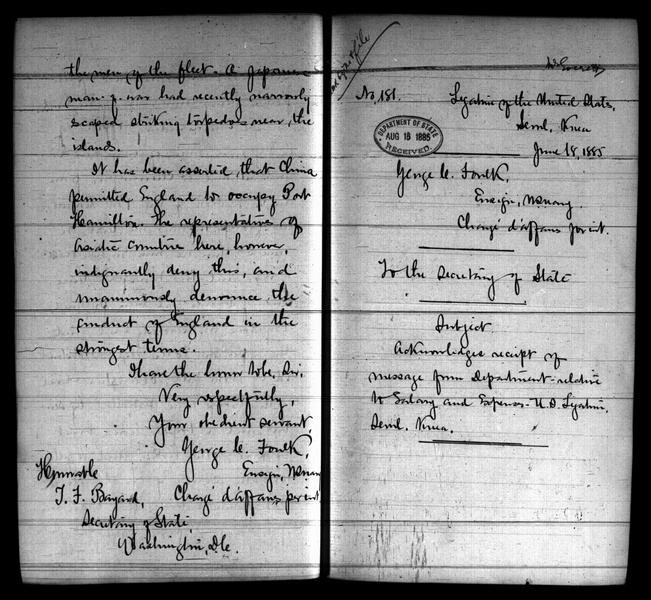 the men of the fleet. A Japanese
man-of-war had recently narrowly
scaped striking torpedoes near the
islands.
It has been asserted that China
permitted England to occupy Port
Hamilton. The representatives of
Asiatic countries here, however,
indignantly deny this, and
unanimously denounce the
conduct of England in the
strongest terms.
I have the honor to be, Sir,
Very respectfully,
Your obedient servant,
George C. Foulk,
Ensign, U.S. Navy
Chargé d'affaires per int
Honorable
T. F. Bayard,
Secretary of State,
Washington, D.C.
file
No. 181.
Legation of the United States,
Seoul, Korea
June 18, 1885
DEPARTMENT OF STATE
AUG 15 1885
RECEIVED
George C. Foulk,
Ensign, U.S. Navy
Chargé d'affaires per int.
To the Secretary of State
Subject
Acknowledges receipt of
message from Department relative
to Salary and Expenses U.S. Legation,
Seoul, Korea.